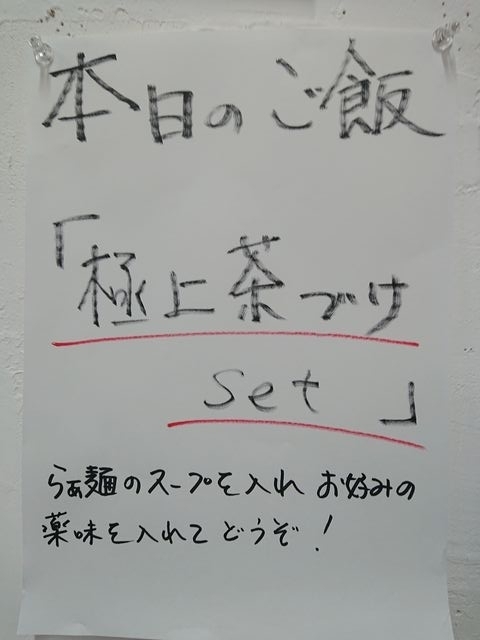 本日のご飯
「極上茶づけ
set」
らぁ麺のスープを入れ お好みの
薬味を入れて どうぞ！